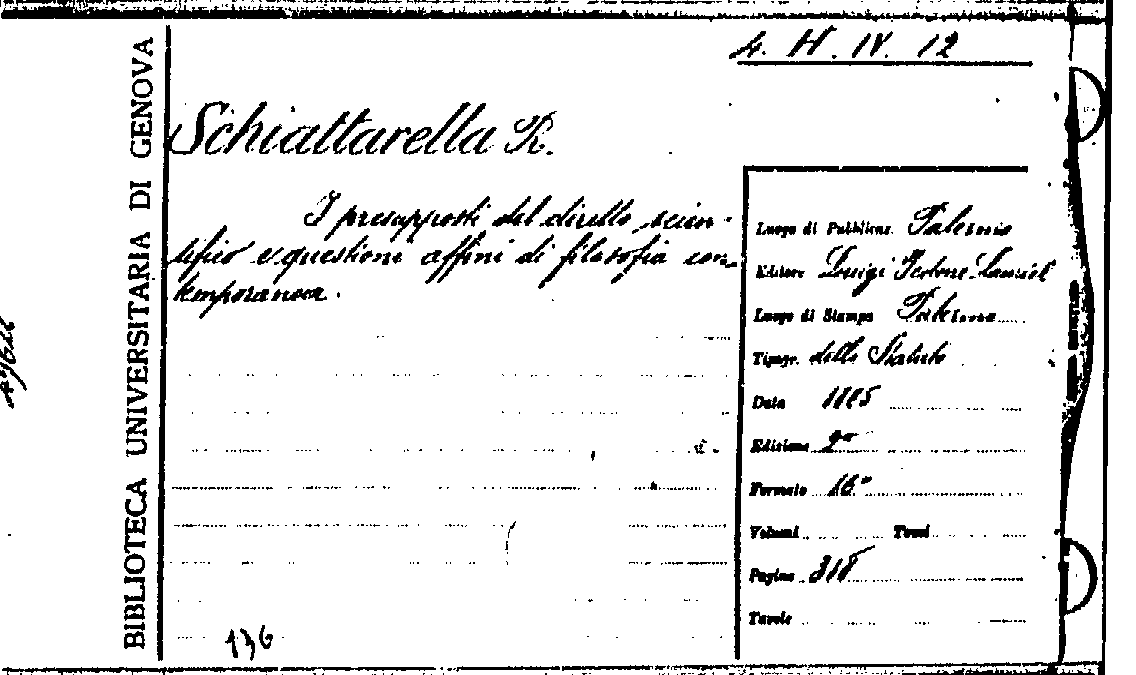 4. H. IV. 12
BIBLIOTECA UNIVERSITARIA DI GENOVA
Schiattarella R.
I presupposti del diritto scien-
tifico e questioni affini di filosofia con-
temporanea.
Luogo di Pubblicaz. Palermo
Editore Luigi Pedone Lauriel
Luogo di Stampa Palermo
Tipogr. dello Statuto
Data 1885
Edizione 2ª
Formato 16°
Volumi Tomi
Pagine 318
Tavole
136